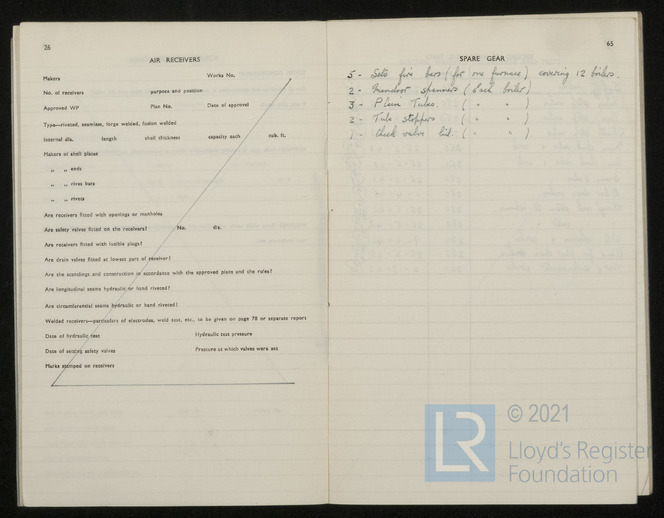 26
AIR RECEIVERS
Makers Works No.
No. of receivers purpose and position
Approved WP Plan No. Date of approval
Type—riveted, seamless, forge welded, fusion welded
Internal dia. length shell thickness capacity each cub. ft.
Makers of shell plates
„ „ ends
„ „ rivet bars
„ „ rivets
Are receivers fitted with openings or manholes
Are safety valves fitted on the receivers? No. dia.
Are receivers fitted with fusible plugs?
Are drain valves fitted at lowest part of receiver?
Are the scantlings and construction in accordance with the approved plans and the rules?
Are longitudinal seams hydraulic or hand riveted?
Are circumferential seams hydraulic or hand riveted?
Welded receivers—particulars of electrodes, weld test, etc., to be given on page 78 or separate report
Date of hydraulic test Hydraulic test pressure
Date of setting safety valves Pressure at which valves were set
Marks stamped on receivers
65
SPARE GEAR
5 - Sets fire bars (for one furnace) covering 12 boilers.
2 - Mandoor spanners (Each boiler)
3 - Plain Tubes. ( " " )
2 - Tube stoppers ( " " )
1 - Check valve lid. ( " " )
LR
© 2021
Lloyd's Register
Foundation